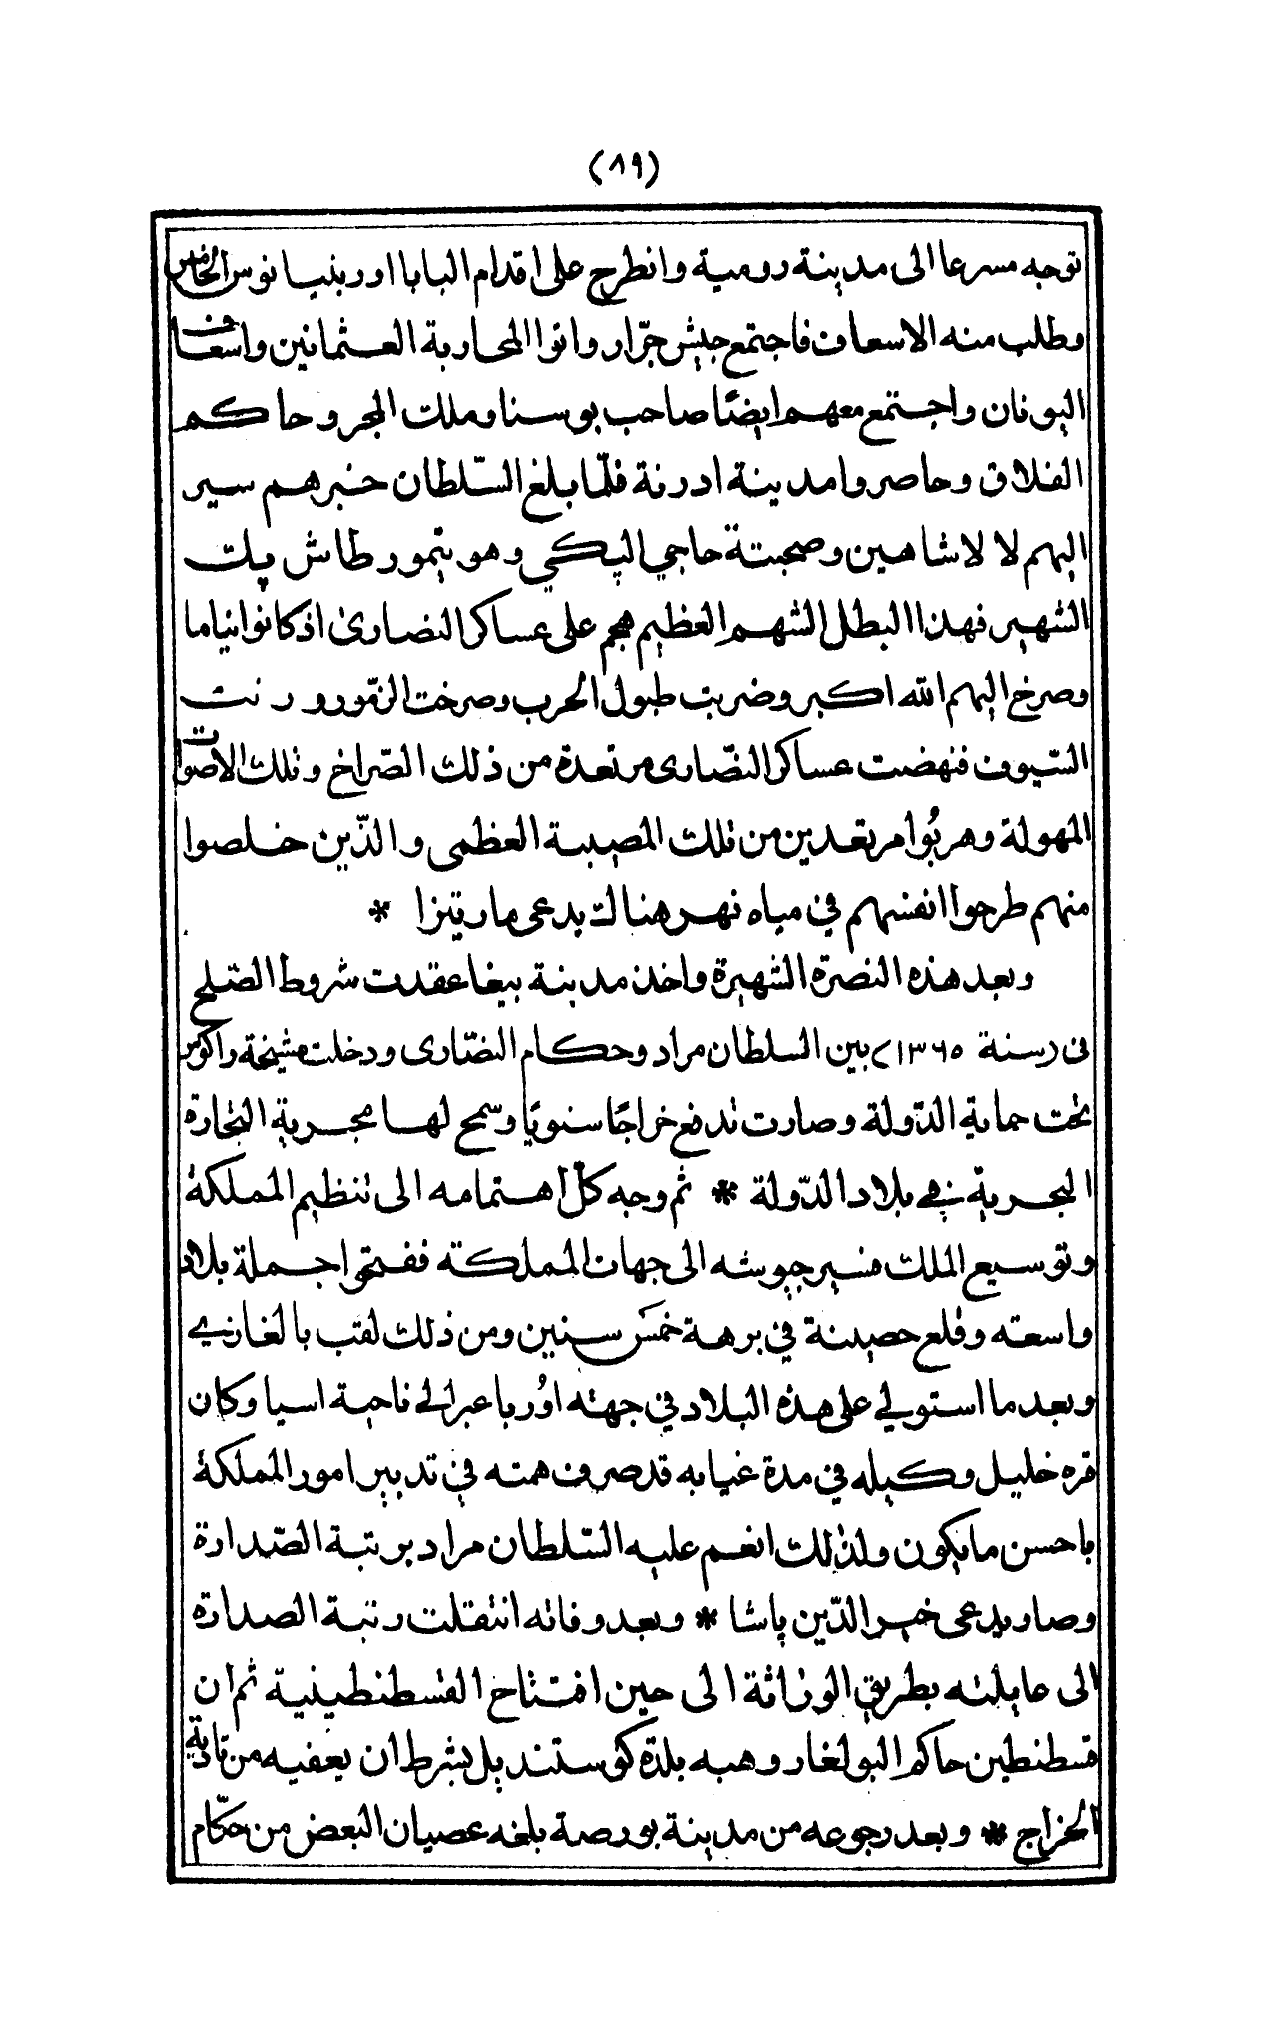 (٨٩)
توجه مسرعا الى مدينة رومية وانطرح على اقدام البابا اوربنيانوس الخامس
وطلب منه الاسعاف فاجتمع جيش جرّار واتوا لمحاربة العثمانين واسعاف
اليونان واجتمع معهم ايضًا صاحب بوسنا وملك المجر وحاكم
الفلاق وحاصروا مدينة ادرنة فلمّا بلغ السّلطان خبرهم سير
اليهم لالا شاهين وصحبتة حاجي البكي وهو تيمورطاش بك
الشهير فهذا البطل الشهم العظيم هجم على عساكر النصارى اذ كانوا نياما
وصرخ اليهم الله اكبر وضربت طبول الحرب وصرخت الزمّور ورنت
السّيوف فنهضت عساكر النصّارى مرتعدة من ذلك الصّراخ وتلك الاصوات
المهولة وهربُوا مرتعدين من تلك المصيبة العظمى والذّين خلصوا
منهم طرحوا انفسهم في مياه نهر هنالك يدعى مارتيزا *
وبعد هذه النصرة الشهيرة واخذ مدينة بيغا عقدت شروط الصّلح
في (سنة ١٣٦٥) بين السلطان مراد وحكام النصّارى ودخلت مشيخة راكوس
تحت حماية الدّولة وصارت تدفع خراجًا سنويًا وسمح لها بحرية التجارة
البحرية في بلاد الدّولة * ثم وجه كلّ اهتمامه الى تنظيم المملكة
وتوسيع الملك فسير جيوشه الى جهات المملكته ففتحوا جملة بلاد
واسعته وقلع حصينة في برهة خمس سنين ومن ذلك لقب بالغازي
وبعد ما استولي على هذه البلاد في جهته اوُربا عبر الى ناحية اسيا وكان
قره خليل وكيله في مدة غيابه قد صرف همته في تدبير امور المملكة
باحسن ما يكون ولذلك انعم عليه السّلطان مراد برتبة الصّدارة
وصار يدعى خير الدّين پاشا * وبعد وفاته انتقلت رتبة الصدارة
الى عايلته بطريق الوراثة الى حين افتتاح القسطنطينية ثم ان
قسطنطين حاكم البولغار وهبه بلدة كوستنديل بشرط ان يعفيه من تادية
الخراج * وبعد رجوعه من مدينة بورصة بلغه عصيان البعض من حكّام